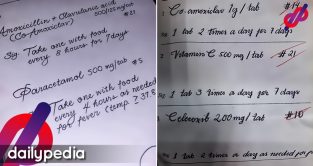 Amoxicillin + Clavulanic acid
(Co-Amoxiclav) 500/125 mg/tab
#21
Sig. Take one with food
every 8 hours for 7 days
Paracetamol 500 mg/tab #5
Take one with food
every 4 hours as needed
for fever (temp > 37.8
dailypedia
Co-amoxiclav 1g / tab #14
1 tab 2 times a day for 7 days
Vitamin C 500 mg / tab #21
1 tab 3 times a day for 7 days
Celecoxib 200 mg / tab #10
1 tab 2 times a day as needed for